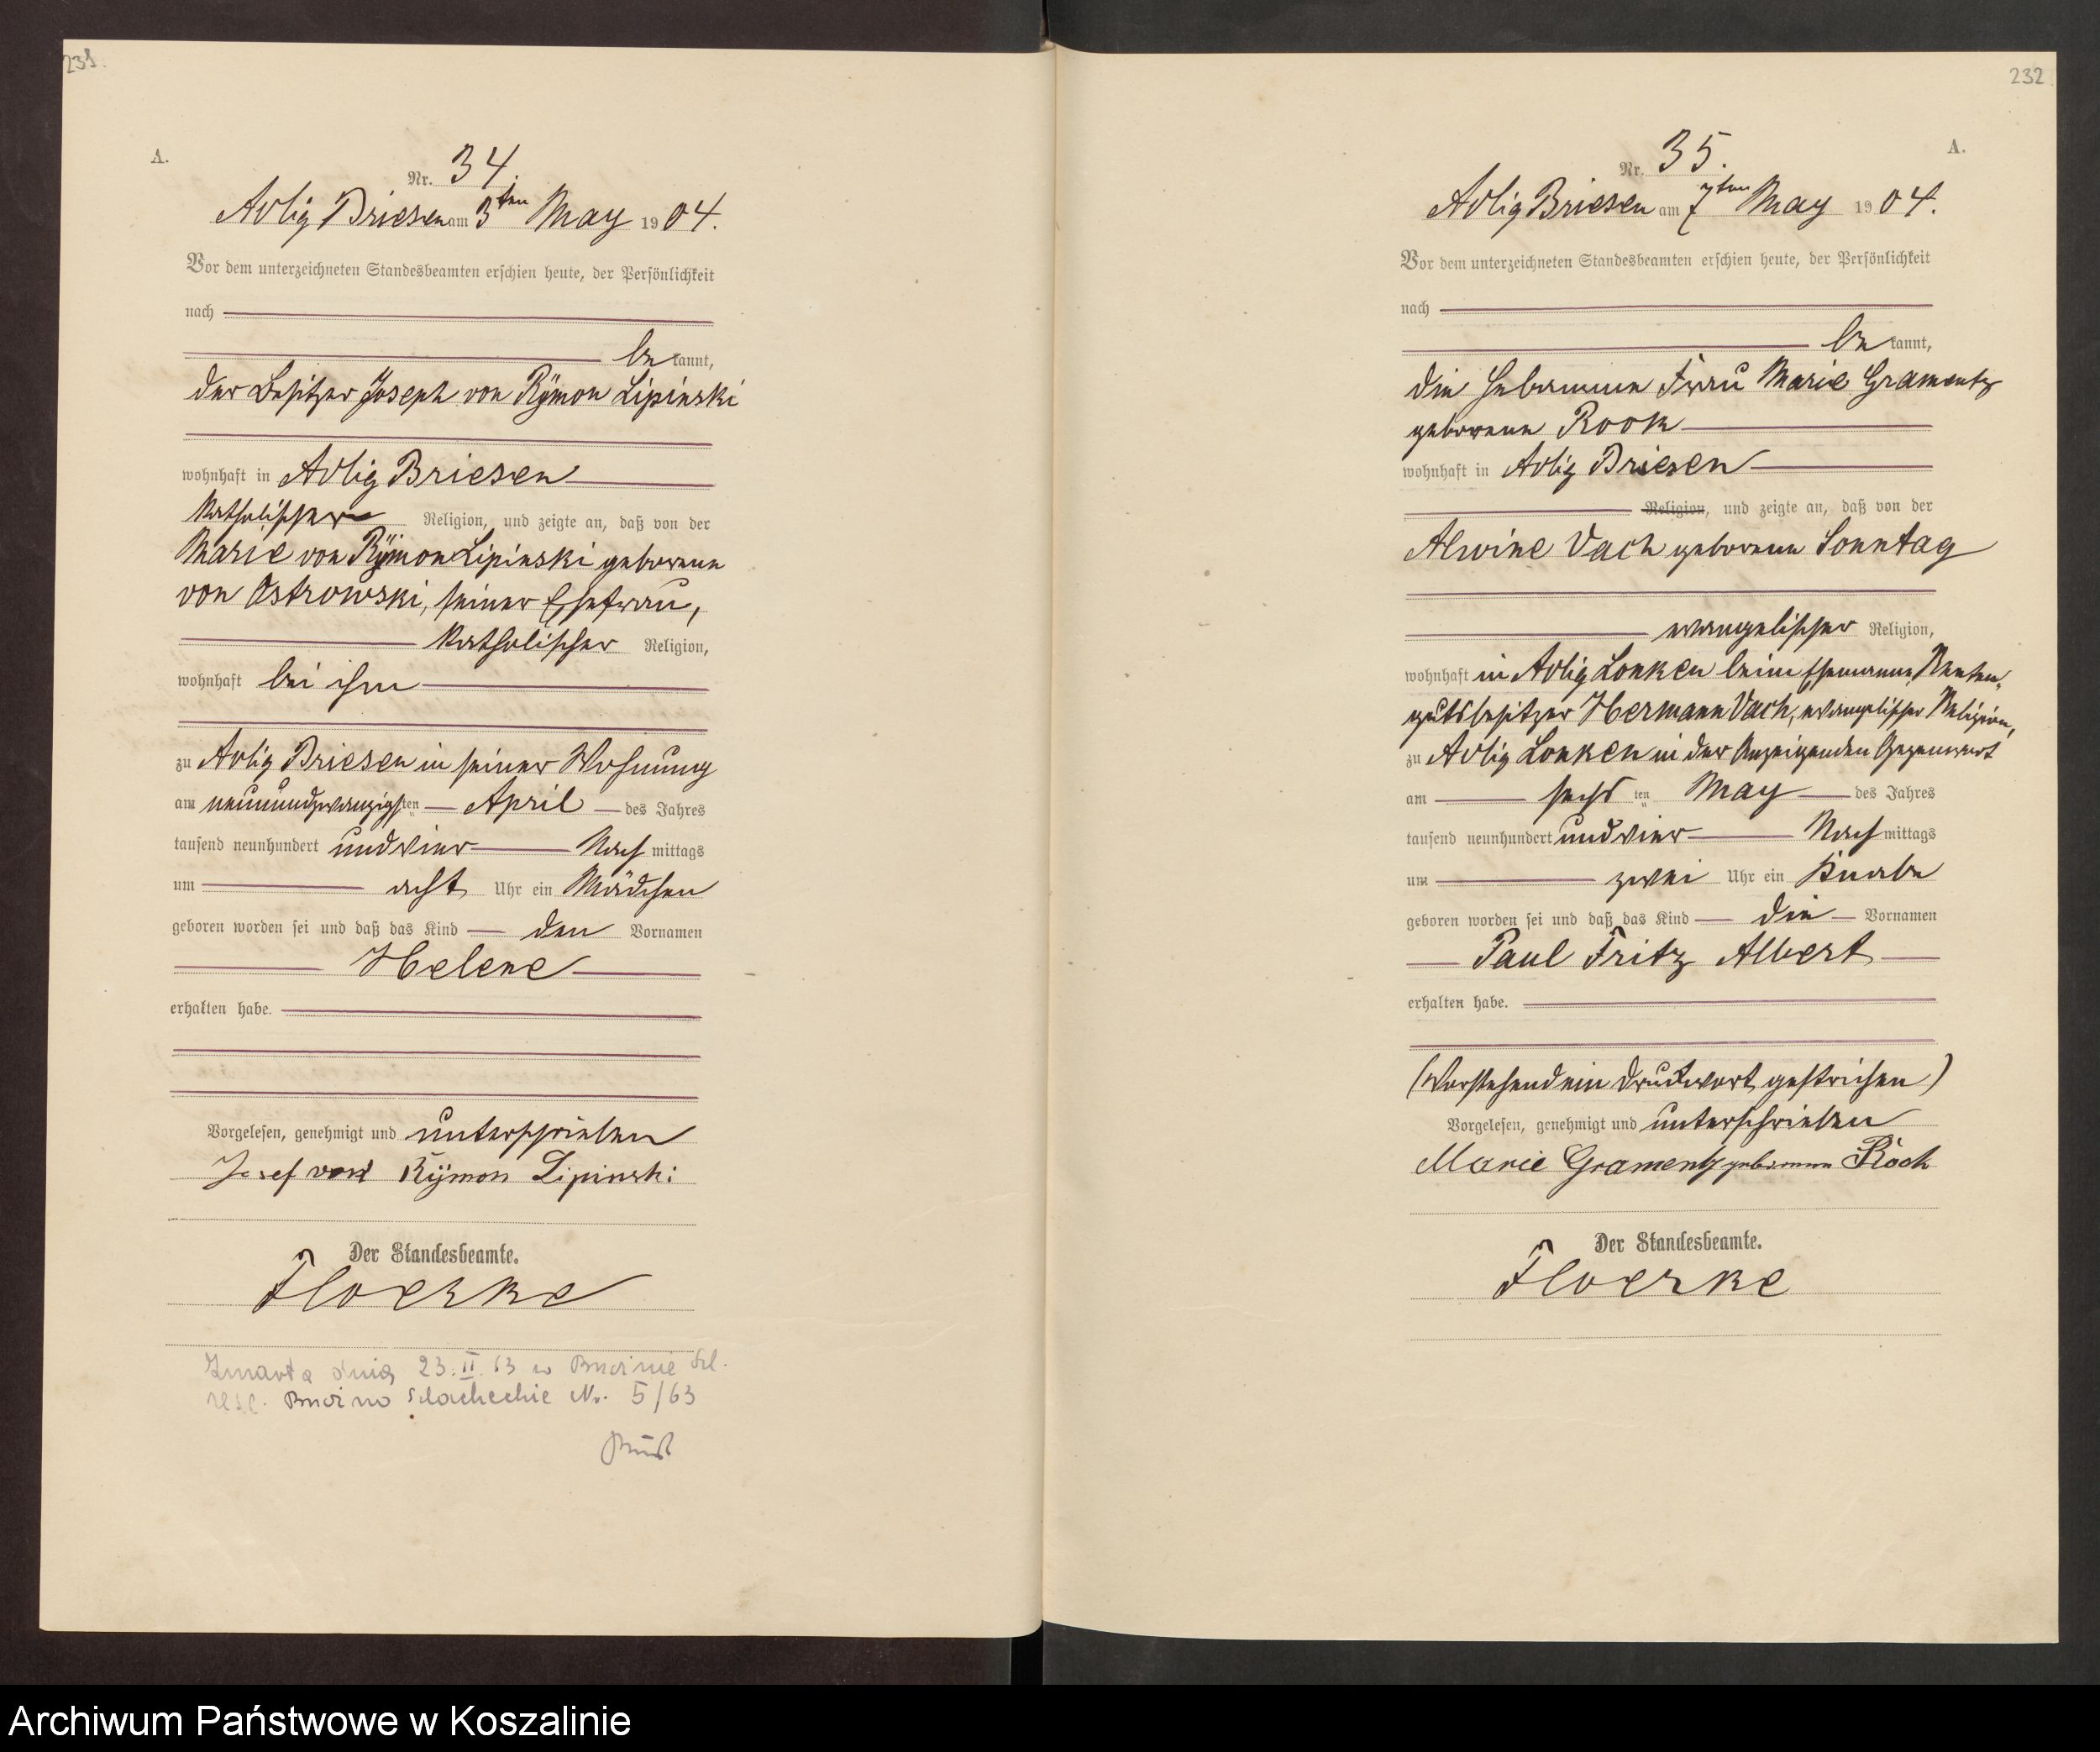 231.
A.
Nr. 34.
Adlig Briesen am 3ten May 1904.
Vor dem unterzeichneten Standesbeamten erschien heute, der Persönlichkeit
nach
be kannt,
der Besitzer Joseph von Rÿmon Lipinski
wohnhaft in Adlig Briesen
katholischer Religion, und zeigte an, daß von der
Marie von Rÿmon Lipinski geborene
von Ostrowski, seiner Ehefrau,
katholischer Religion,
wohnhaft bei ihm
zu Adlig Briesen in seiner Wohnung
am neunundzwanzigsten April des Jahres
tausend neunhundert und vier Nach mittags
um acht Uhr ein Mädchen
geboren worden sei und daß das Kind den Vornamen
Helene
erhalten habe.
Vorgelesen, genehmigt und unterschrieben
Josef von Rÿmon Lipinski
Der Standesbeamte.
Floerke
Zmarła dnia 23.II.63 w
Szlacheckie Nr. 5/63
232
A.
Nr. 35.
Adlig Briesen am 7ten May 1904.
Vor dem unterzeichneten Standesbeamten erschien heute, der Persönlichkeit
nach
be kannt,
die Hebamme Frau Marie Gramentz
geborene Rook
wohnhaft in Adlig Briesen
Religion, und zeigte an, daß von der
Alwine Vach geborene Sonntag
evangelischer Religion,
wohnhaft in Adlig Lonken beim Ehemanne, Renten-
gutsbesitzer Hermann Vach, evangelischer Religion,
zu Adlig Lonken in der Anzeigenden Gegenwart
am sechs ten May des Jahres
tausend neunhundert und vier Nach mittags
um zwei Uhr ein Knabe
geboren worden sei und daß das Kind die Vornamen
Paul Fritz Albert
erhalten habe.
(Vorstehend ein Druckwort gestrichen)
Vorgelesen, genehmigt und unterschrieben
Marie Gramentz geborene Rook
Der Standesbeamte.
Floerke
Archiwum Państwowe w Koszalinie